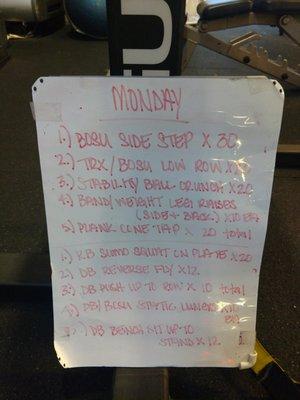 MONDAY
1.) BOSU SIDE STEP X 30
2.) TRX/BOSU LOW ROW X
3.) STABILITY BALL CRUNCH X 20
4.) BAND/WEIGHT LEG RAISES
(SIDE + BACK) X10 EA
5.) PLANK CONE TAP X 20 total
1.) KB SUMO SQUAT ON PLATE X 20
2.) DB REVERSE FLY X 12
3.) DB PUSH UP TO ROW X 10 total
DB/BOSU STATIC LUNGES X10
) DB BENCH SIT UP TO
STAND X 12